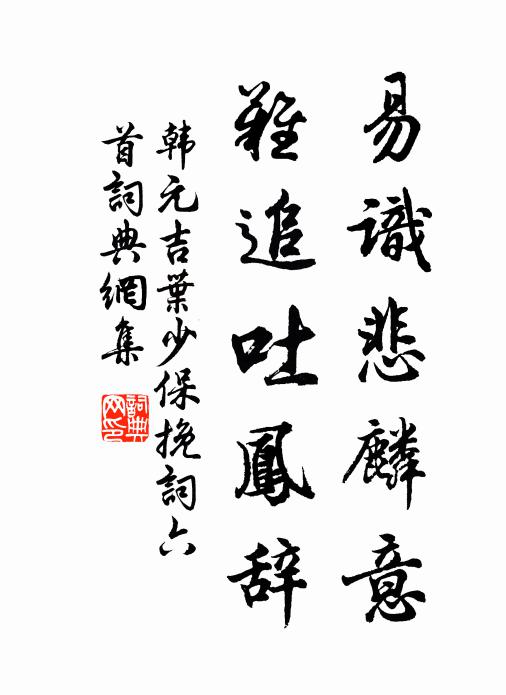 易識悲麟意
難追吐鳳辞
韩元吉葉少保挽詞六
首詞典網集
詞典
网印